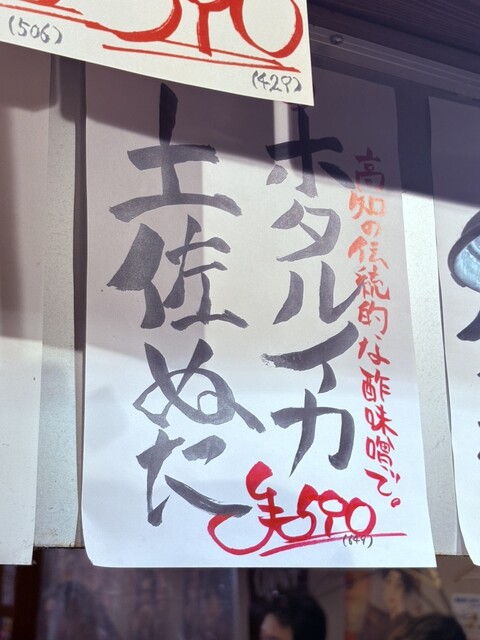 (506)
390
(429)
高知の伝統的な酢味噌で。
ホタルイカ
土佐ぬた
¥590
(649)